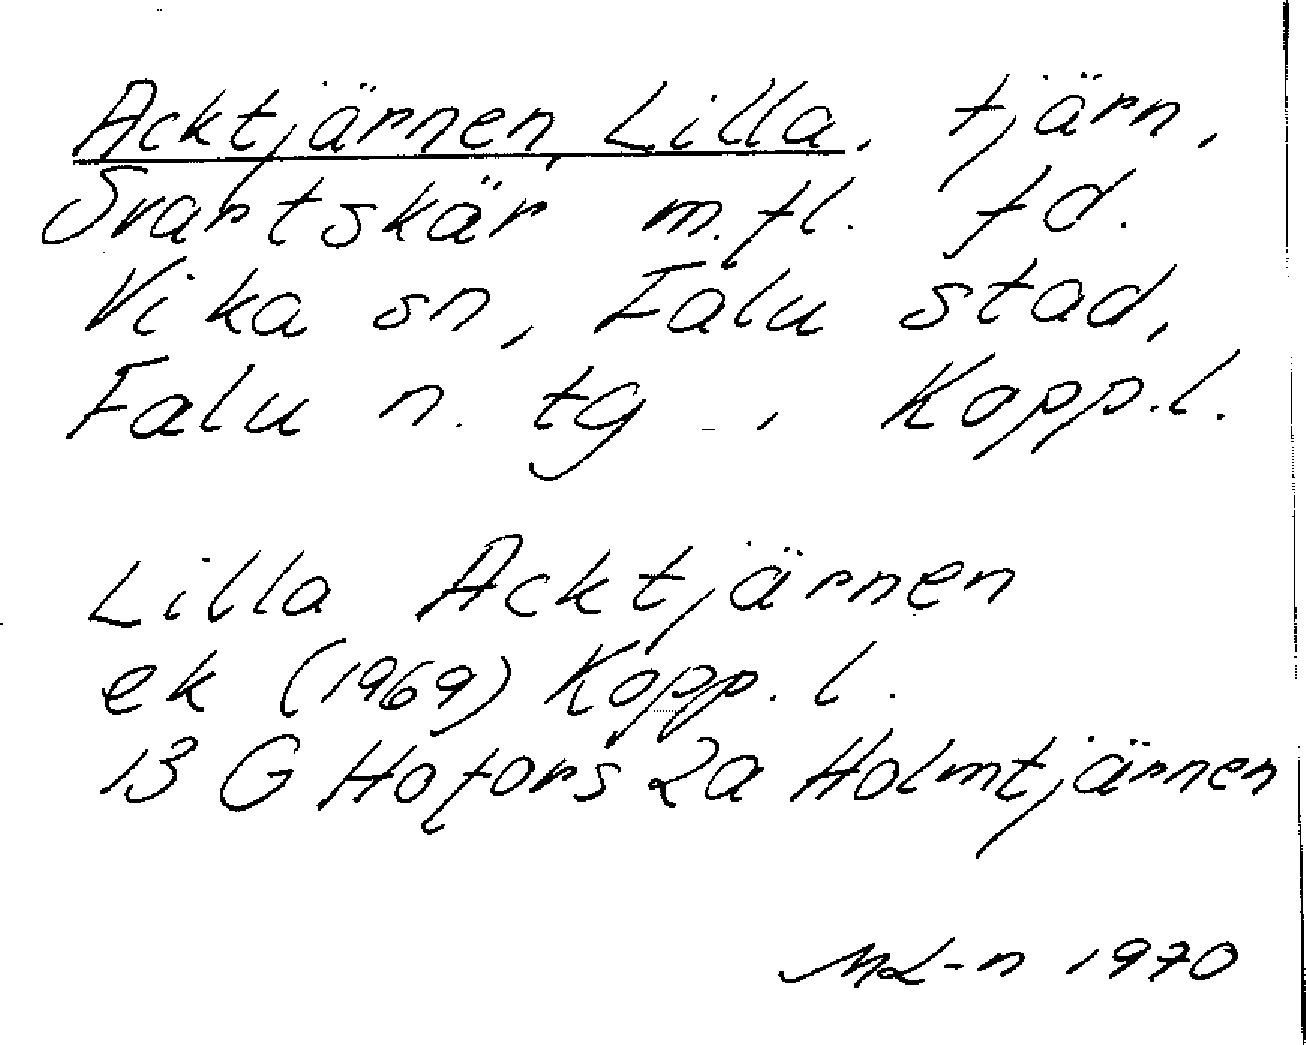 Acktjärnen, Lilla, tjärn,
Svartskär m.fl. fd.
Vika sn, Falu stad,
Falu n. tg -, Kopp.l.
Lilla Acktjärnen
ek (1969) Kopp. l.
13 G Hofors 2a Holmtjärnen
ML-n 1970